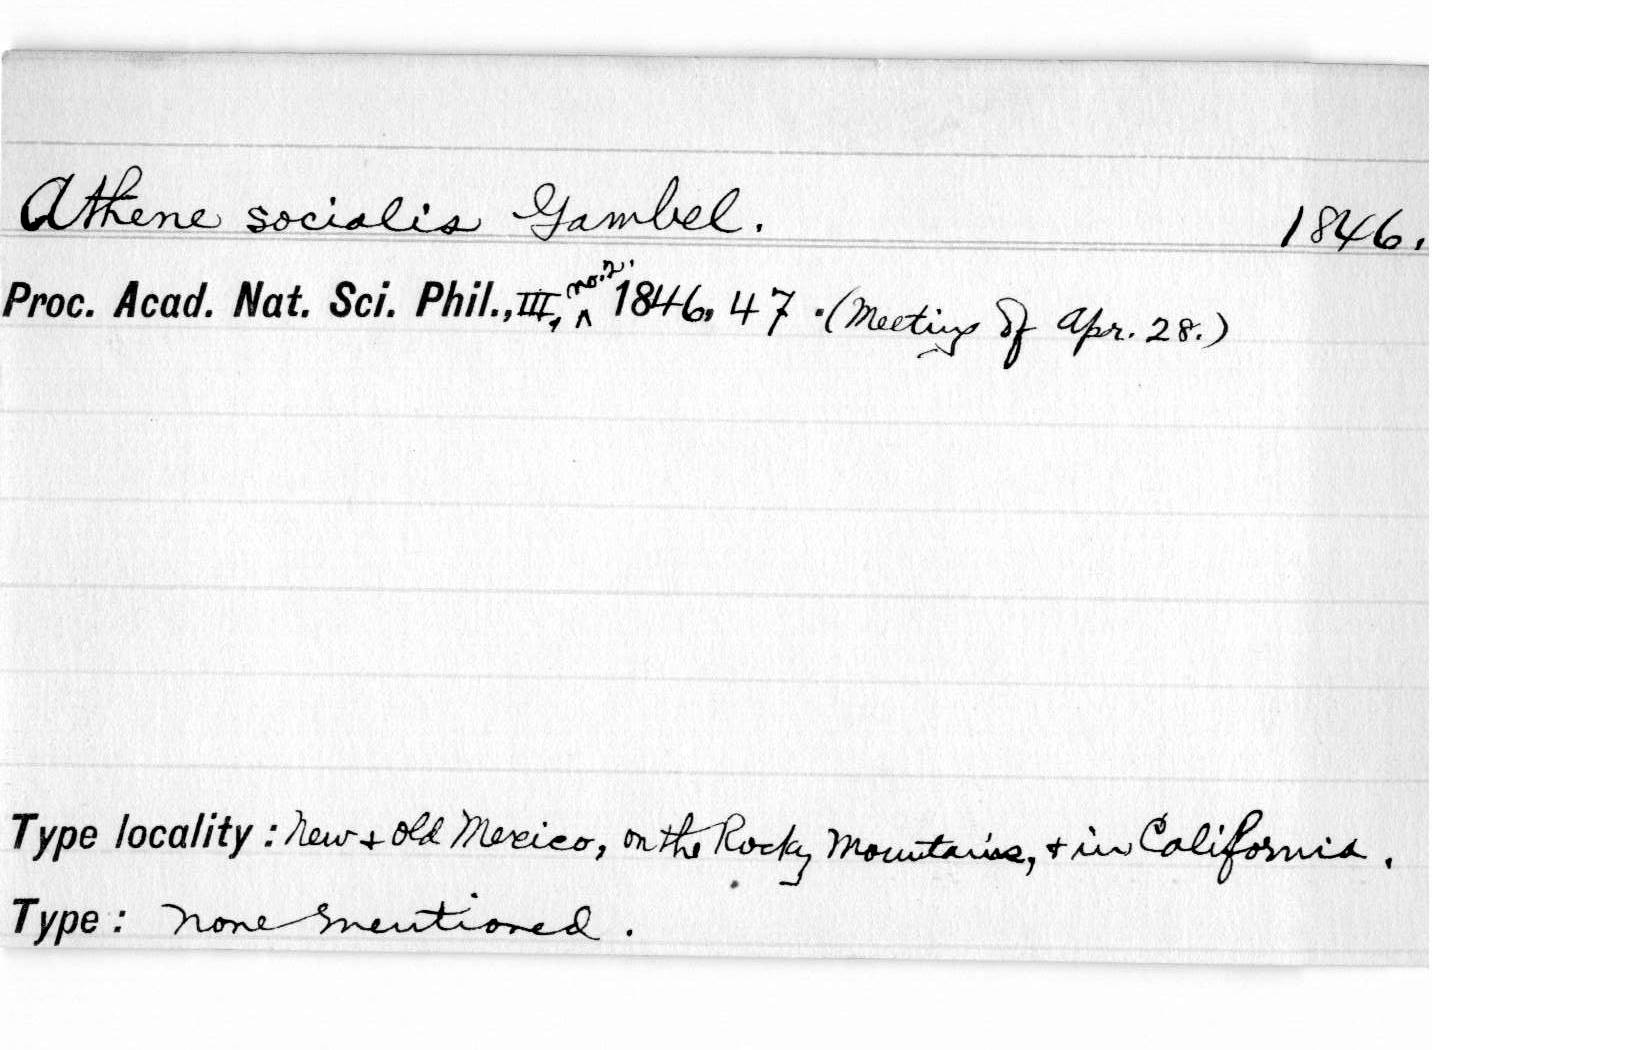 Athene socialis Gambel. 1846.
Proc. Acad. Nat. Sci. Phil., III, no. 2. 1846, 47. (Meeting of Apr. 28.)
Type locality: New + old Mexico, on the Rocky Mountains, + in California.
Type: none mentioned.